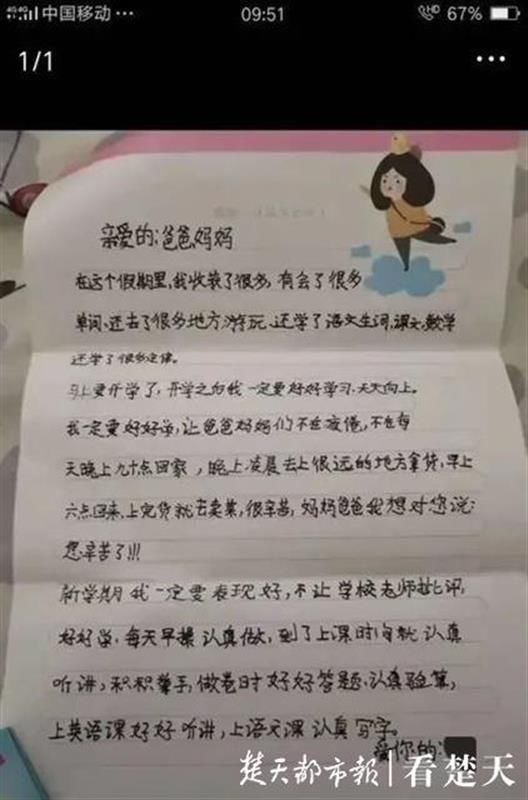 中国移动 ··· 09:51 HD 67%
1/1 ···
亲爱的:爸爸妈妈
在这个假期里,我收获了很多,有会了很多
单词、还去了很多地方游玩、还学了语文生词,课文,数学
还学了很多定律。
马上要开学了,开学之后我一定要好好学习,天天向上。
我一定要好好学,让爸爸妈妈们不在疲倦,不在每
天晚上九十点回家,晚上凌晨去上很远的地方拿货,早上
六点回来,上完货就去卖菜,很辛苦,妈妈爸爸我想对您说:
您辛苦了!!!
新学期我一定要表现好,不让学校老师批评,
好好学,每天早操认真做,到了上课时间就认真
听讲,积积举手,做卷时好好答题,认真验算,
上英语课好好听讲,上语文课认真写字。
爱你的:
楚天都市报|看楚天